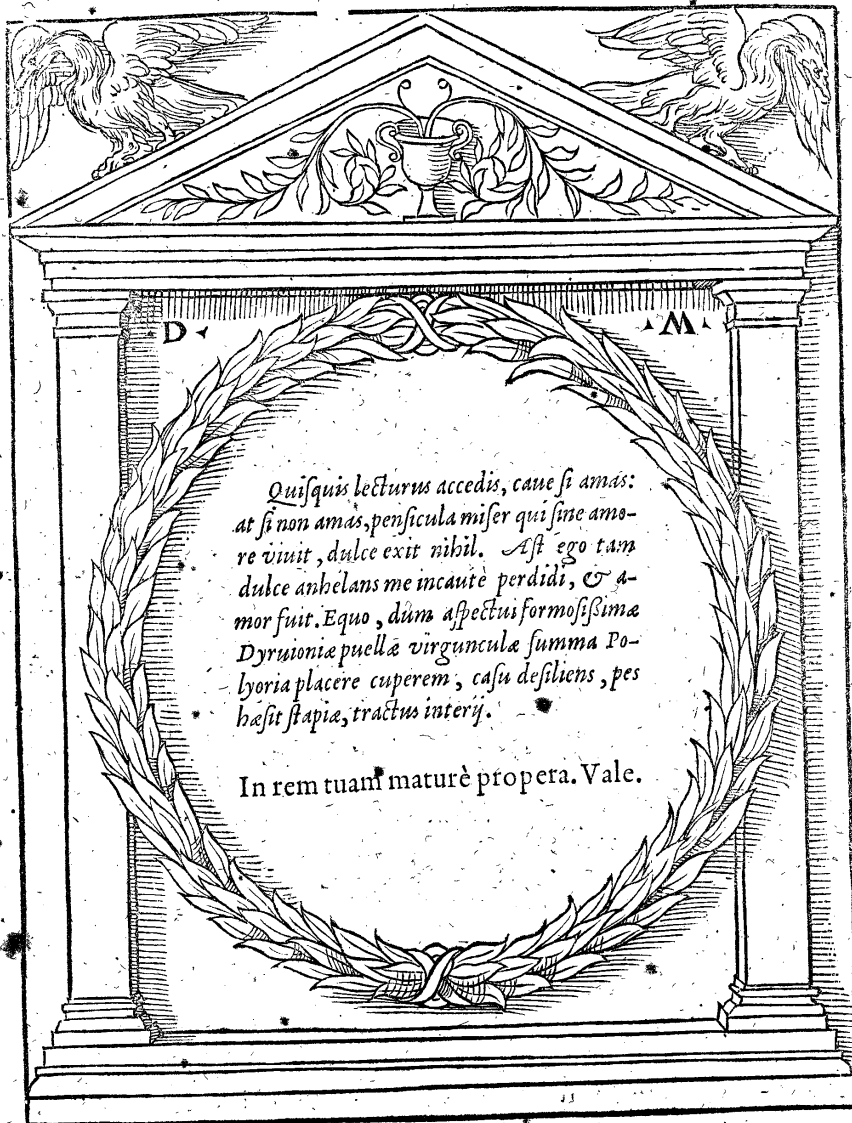 D M
Quiſquis lecturus accedis, caue ſi amas:
at ſi non amas, penſicula miſer qui ſine amo-
re viuit, dulce exit nihil. Aſt ego tam
dulce anhelans me incautè perdidi, & a-
mor fuit. Equo, dum aſpectui formoſißimæ
Dyruioniæ puellæ virgunculæ ſumma Po-
lyoria placere cuperem, caſu deſiliens, pes
hæſit ſtapiæ, tractus interij.
In rem tuam maturè propera. Vale.